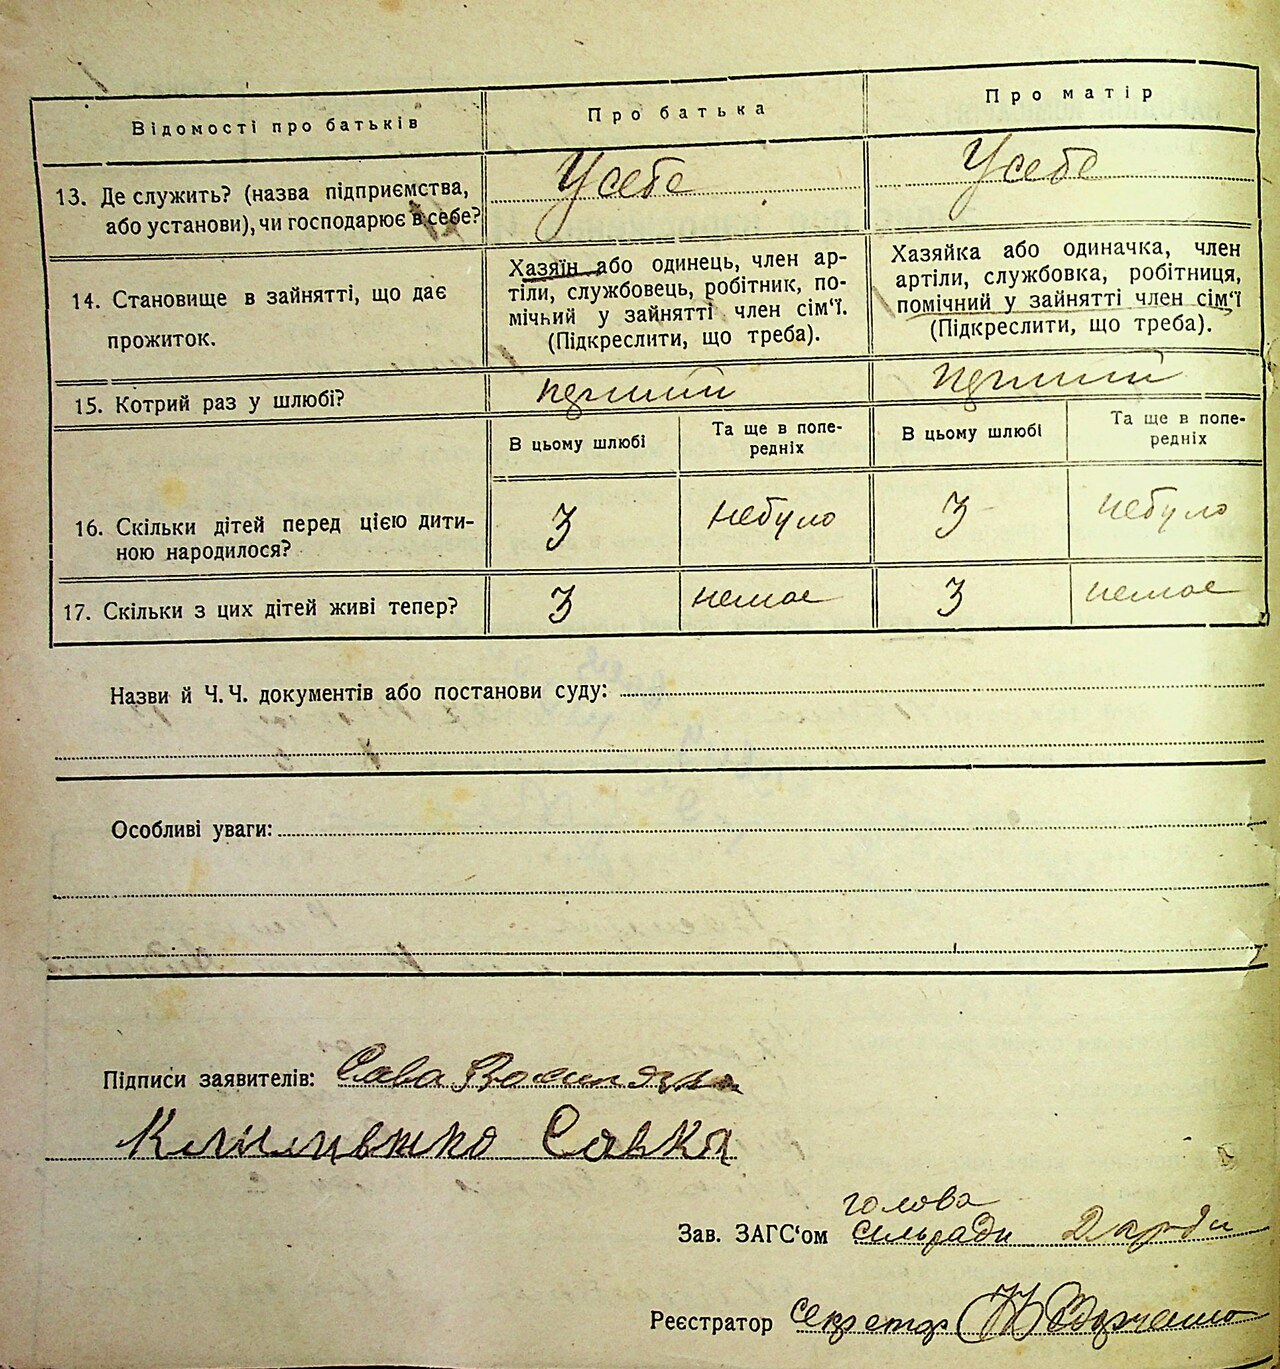 Відомості про батьків
Про батька
Про матір
13. Де служить? (назва підприємства,
або установи), чи господарює в себе?
У себе
У себе
14. Становище в зайнятті, що дає
прожиток.
Хазяїн або одинець, член ар-
тіли, службовець, робітник, по-
мічний у зайнятті член сім'ї.
(Підкреслити, що треба).
Хазяйка або одиначка, член
артіли, службовка, робітниця,
помічний у зайнятті член сім'ї
(Підкреслити, що треба).
15. Котрий раз у шлюбі?
перший
перший
В цьому шлюбі
Та ще в попе-
редніх
В цьому шлюбі
Та ще в попе-
редніх
16. Скільки дітей перед цією дити-
ною народилося?
3
небуло
3
небуло
17. Скільки з цих дітей живі тепер?
3
немає
3
немає
Назви й Ч.Ч. документів або постанови суду:
Особливі уваги:
Підписи заявителів: Сава
Савка
голова
Зав. ЗАГС'ом сільради
Реєстратор секретар